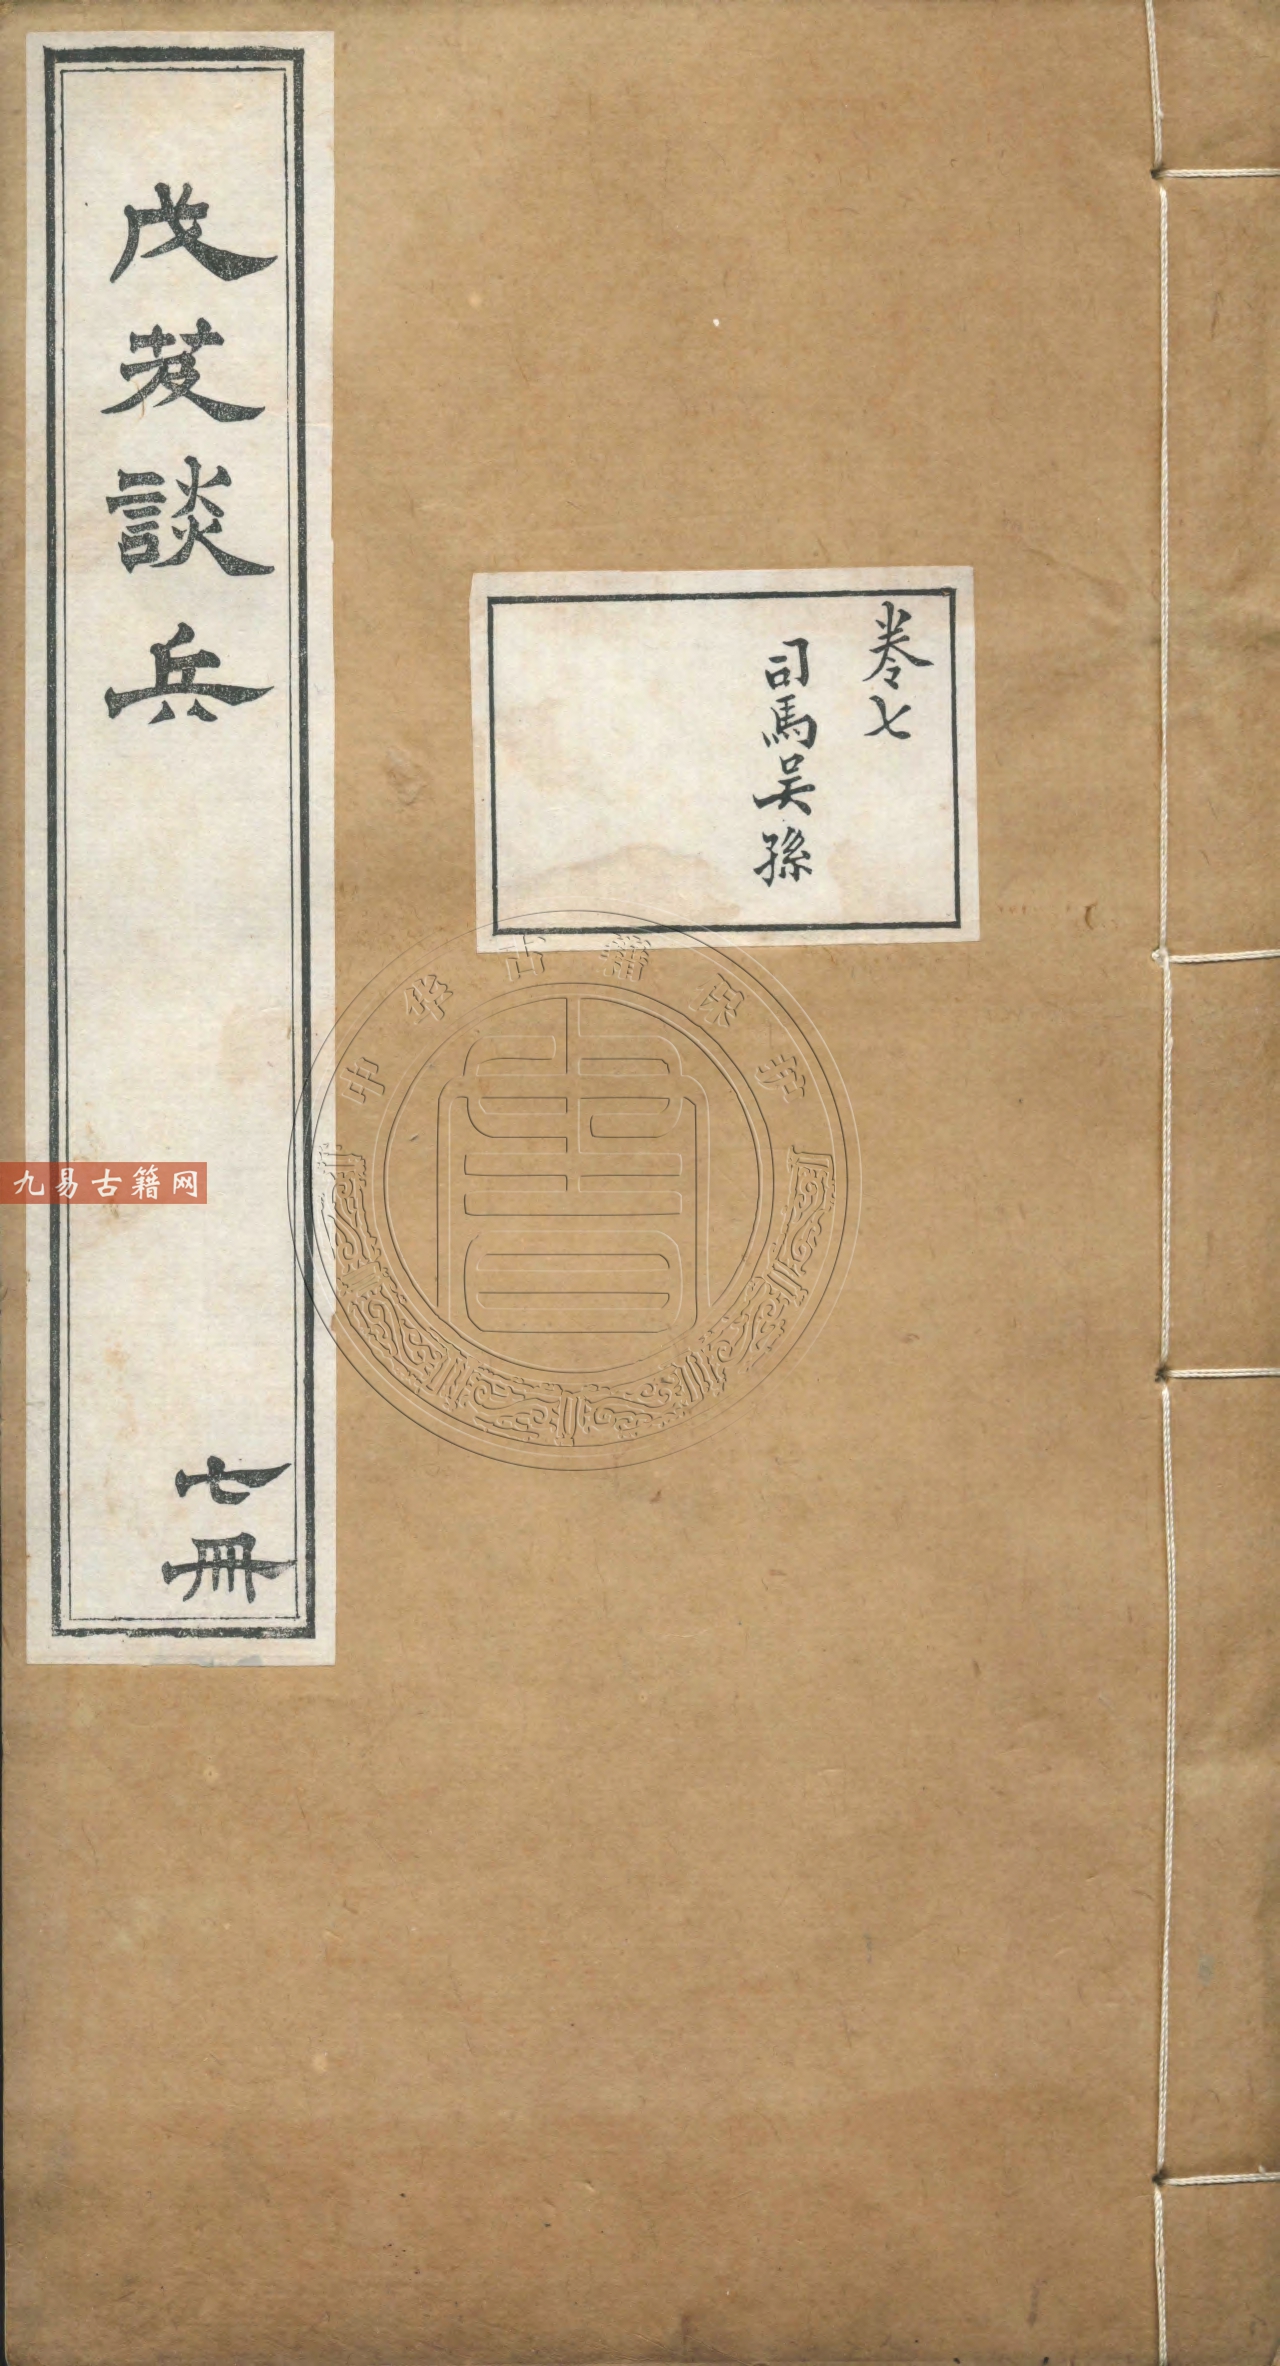 戊芨談兵
七冊
卷七
司馬吳孫
中华古籍保护
九易古籍网